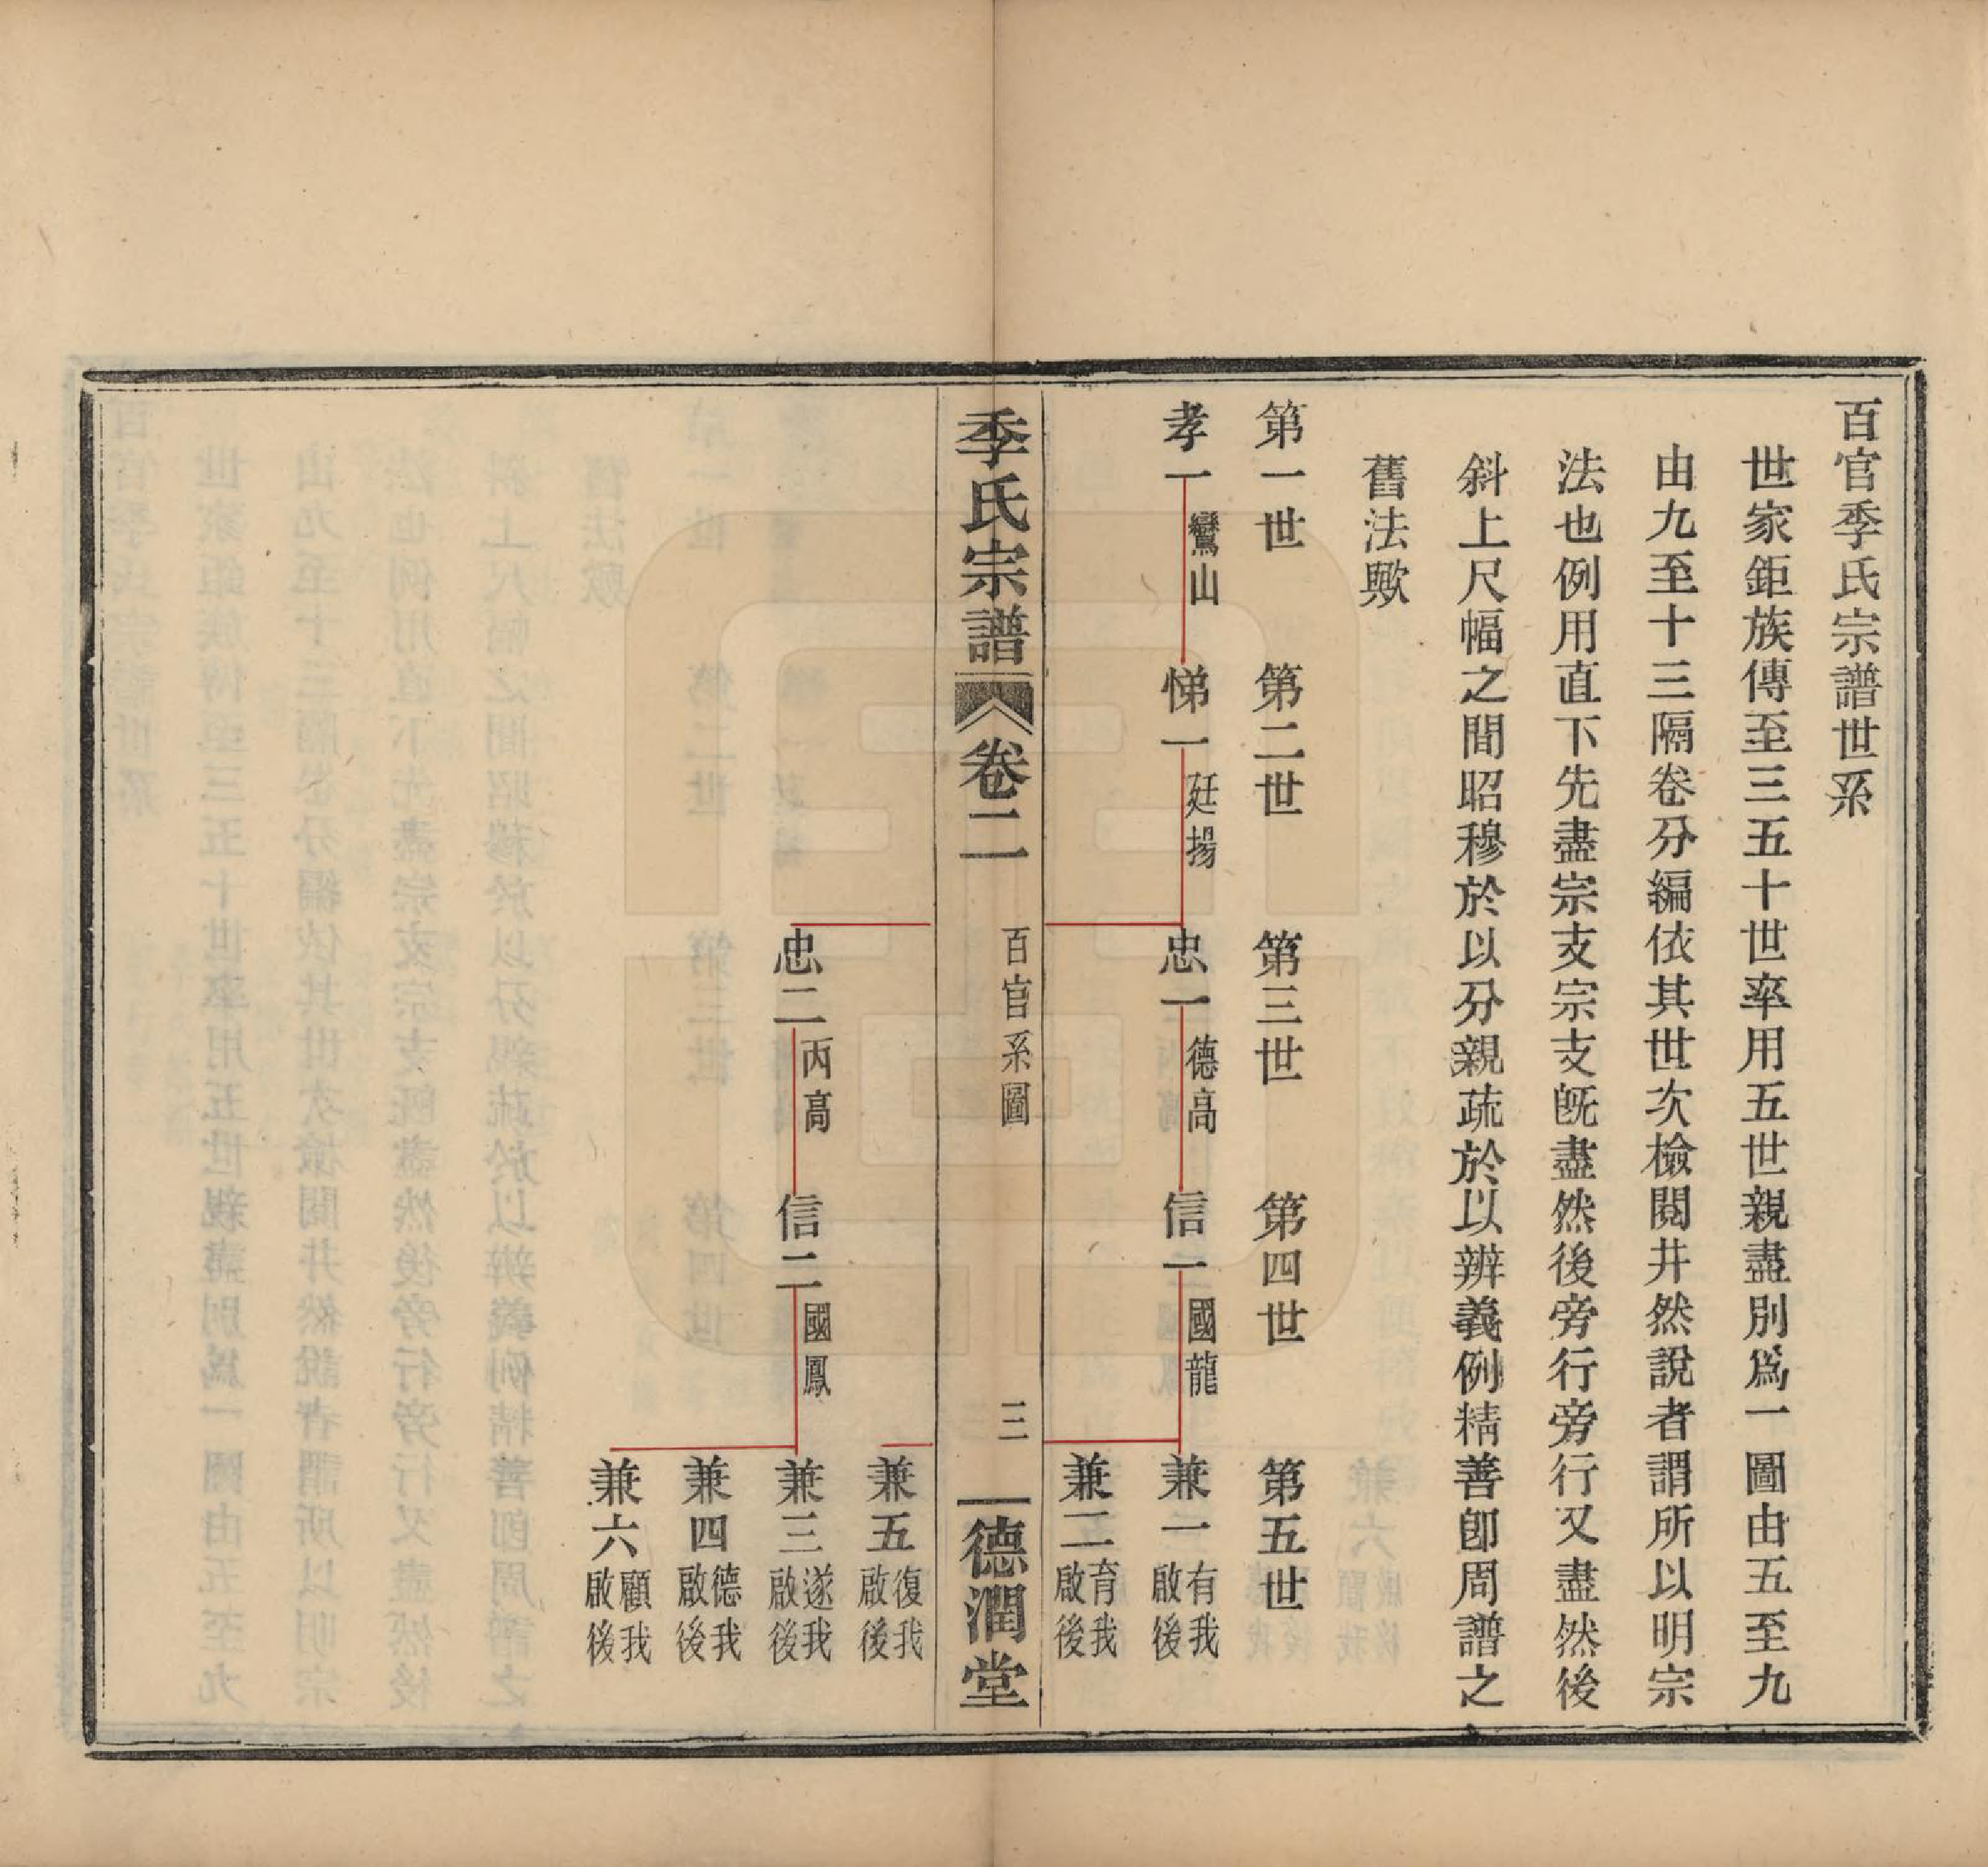 百官季氏宗譜世系
世家鉅族傳至三五十世率用五世親盡別爲一圖由五至九
由九至十三隔卷分編依其世次檢閱井然說者謂所以明宗
法也例用直下先盡宗支宗支旣盡然後旁行旁行又盡然後
斜上尺幅之間昭穆於以分親疏於以辨義例精善卽周譜之
舊法歟
第一世 第二世 第三世 第四世 第五世
孝一 鸞山 悌一 廷揚 忠一 德高 信一 國龍 兼一 有我 啟後
兼二 育我 啟後
季氏宗譜 卷二 百官系圖 三 德潤堂
兼五 復我 啟後
忠二 丙高 信二 國鳳 兼三 遂我 啟後
兼四 德我 啟後
兼六 顧我 啟後